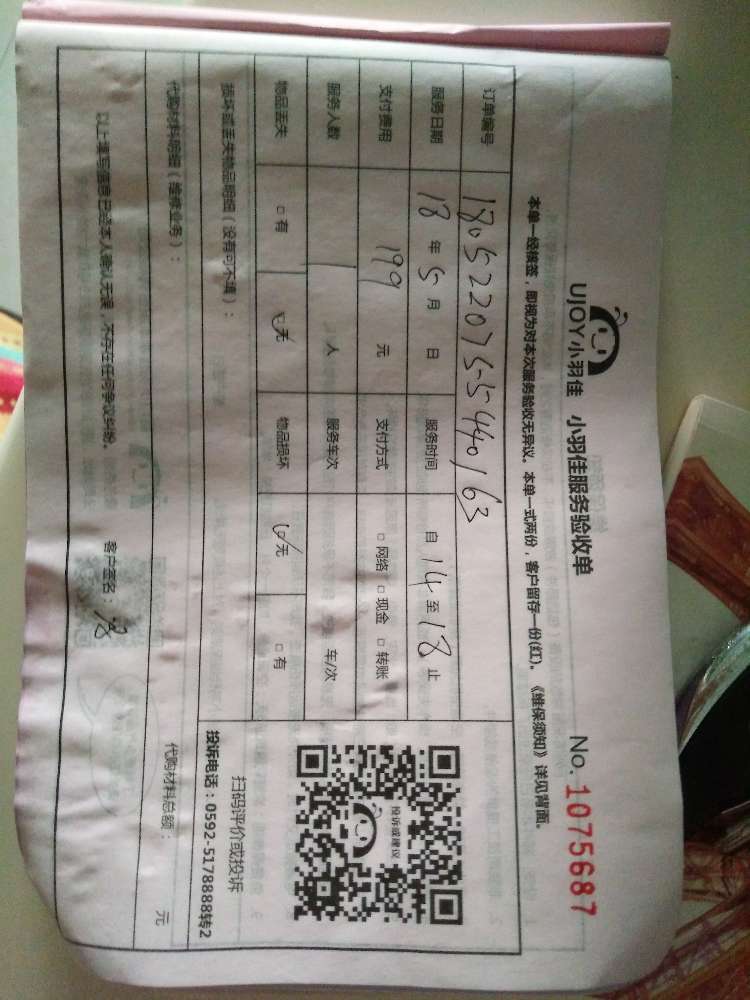 UJOY小羽佳 小羽佳服务验收单 No. 1075687
本单一经核签，即视为对本次服务验收无异议。本单一式两份，客户留存一份(红)。《维保须知》详见背面。
订单编号 180522075-5440163
服务日期 18 年 5 月 日 服务时间 自 14 至 18 止
支付费用 199 元 支付方式 □ 网络 □ 现金 □ 转账
服务人数 1 人 服务车次 车/次
物品丢失 □ 有 ☑ 无 物品损坏 ☑ 无 □ 有
投诉或建议
扫码评价或投诉
投诉电话：0592-5178888转2
损坏或丢失物品明细（没有可不填）：
代购材料明细（维修业务）： 代购材料总额： 元
以上填写信息已经本人确认无误，不存在任何争议纠纷。 客户签名：